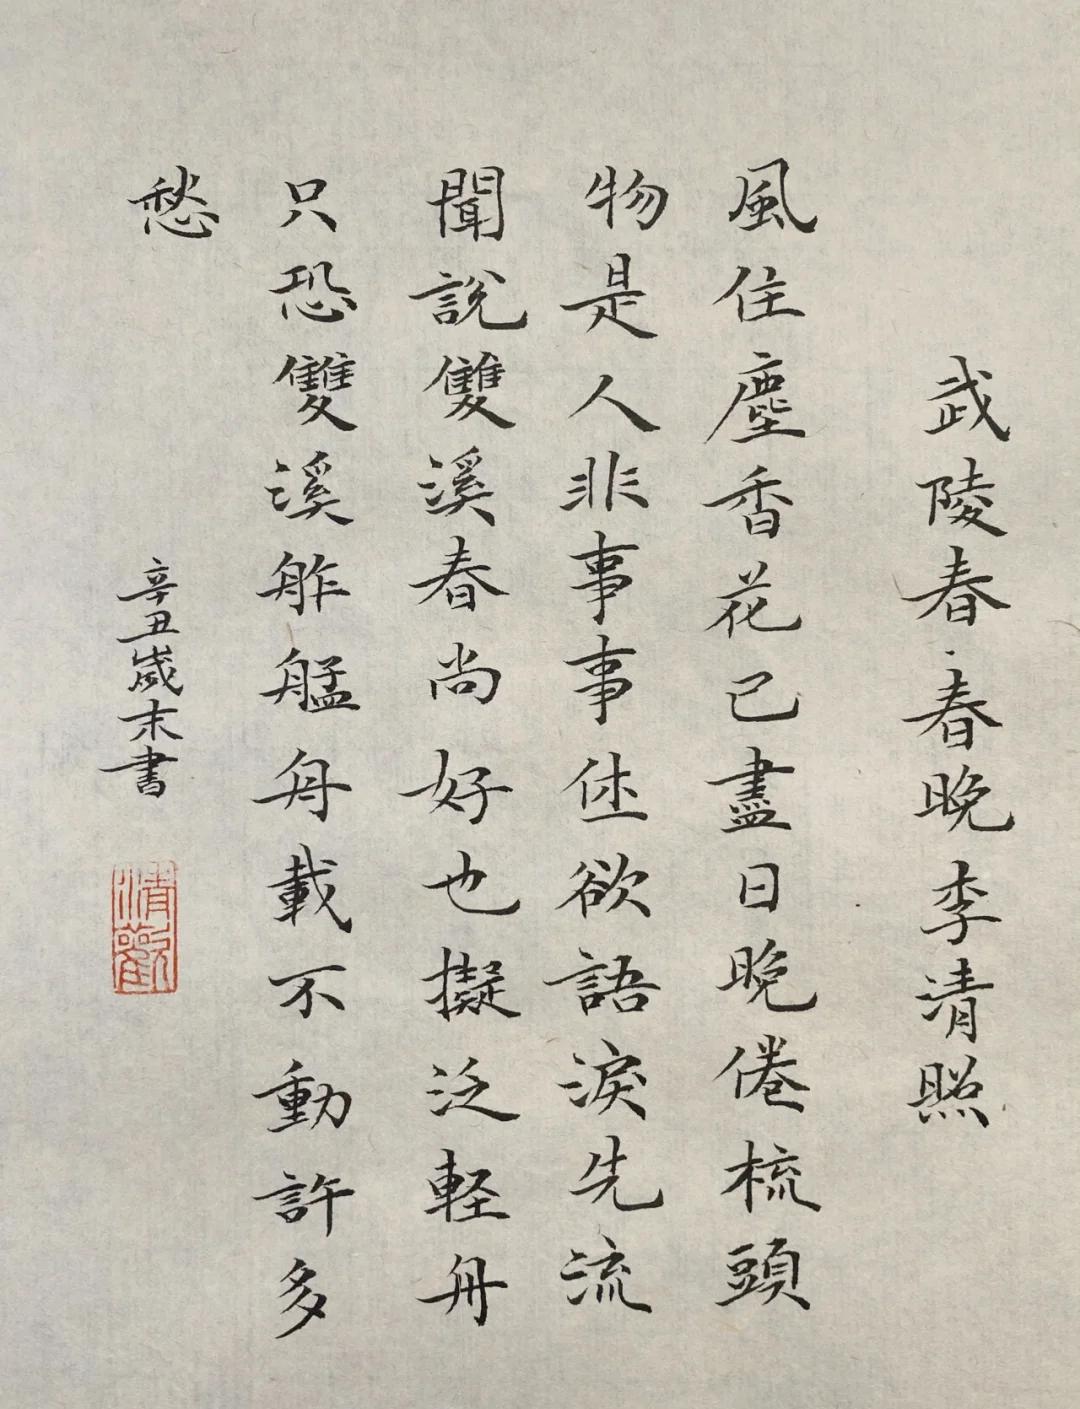 武陵春·春晚李清照
風住塵香花已盡日晚倦梳頭
物是人非事事休欲語淚先流
聞說雙溪春尚好也擬泛軽舟
只恐雙溪舴艋舟載不動許多
愁
辛丑歲末書
清觀